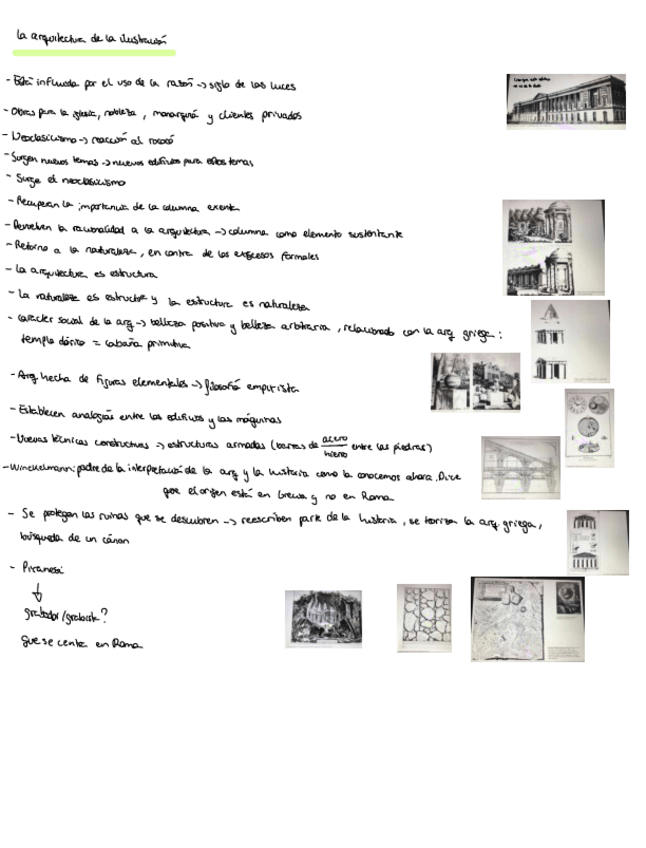 la arquitectura de la ilustración
- Está influida por el uso de la razón -> siglo de las luces
- Obras para la iglesia, nobleza, monarquía y clientes privados
- Neoclasicismo -> reacción al rococó
- Surgen nuevos temas -> nuevos edificios para estos temas
- Surge el neoclasicismo
- Recuperan la importancia de la columna exenta
- Devuelven la racionalidad a la arquitectura -> columna como elemento sustentante
- Retorno a la naturaleza, en contra de los excesos formales
- La arquitectura es estructura
- La naturaleza es estructura y la estructura es naturaleza
- carácter social de la arq -> belleza positiva y belleza arbitraria, relacionado con la arq. griega:
templo dórico = cabaña primitiva
- Arq. hecha de figuras elementales -> filosofía empirista
- Establecen analogías entre los edificios y las máquinas
- Nuevas técnicas constructivas -> estructuras armadas (barras de acero/hierro entre las piedras)
- Winckelmann: padre de la interpretación de la arq y la historia como la conocemos ahora. Dice
que el origen está en Grecia y no en Roma
- Se protegen las ruinas que se descubren -> reescriben parte de la historia, se teoriza la arq. griega,
búsqueda de un cánon
- Piranesi
↓
grabador/grabista?
que se centra en Roma